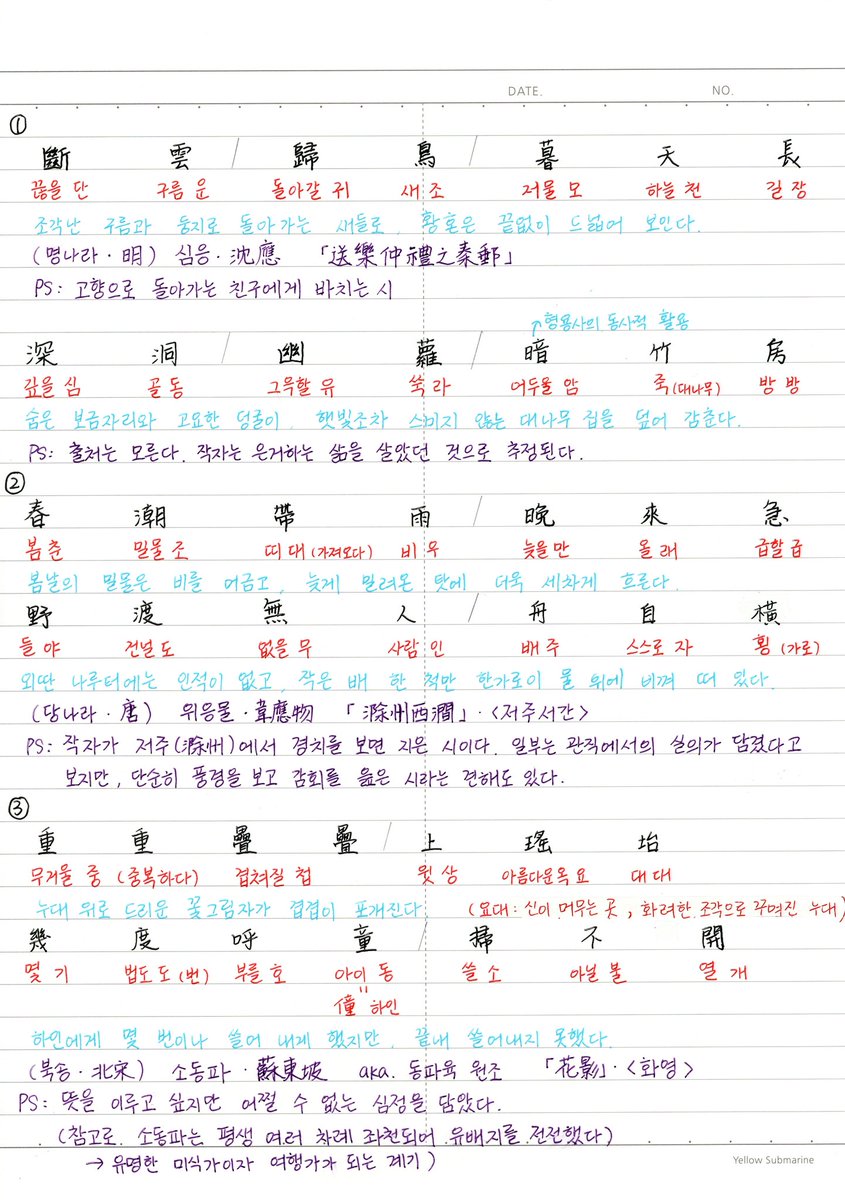 DATE. NO.
①
斷 雲 / 歸 鳥 / 暮 天 長
끊을 단 구름 운 돌아갈 귀 새 조 저물 모 하늘 천 길 장
조각난 구름과 둥지로 돌아가는 새들로, 황혼은 끝없이 드넓어 보인다.
(명나라·明) 심응·沈應 「送樂仲禮之秦郵」
PS: 고향으로 돌아가는 친구에게 바치는 시
↗형용사의 동사적 활용
深 洞 / 幽 蘿 / 暗 竹 房
깊을 심 골 동 그윽할 유 쑥 라 어두울 암 죽(대나무) 방 방
숨은 보금자리와 고요한 덩굴이, 햇빛조차 스미지 않는 대나무 집을 덮어 감춘다.
PS: 출처는 모른다. 작자는 은거하는 삶을 살았던 것으로 추정된다.
②
春 潮 帶 雨 / 晩 來 急
봄 춘 밀물 조 띠 대 (가져오다) 비 우 늦을 만 올 래 급할 급
봄날의 밀물은 비를 머금고, 늦게 밀려온 탓에 더욱 세차게 흐른다.
野 渡 無 人 / 舟 自 橫
들 야 건널 도 없을 무 사람 인 배 주 스스로 자 횡 (가로)
외딴 나루터에는 인적이 없고, 작은 배 한 척만 한가로이 물 위에 비껴 떠 있다.
(당나라·唐) 위응물·韋應物 「滁州西澗」·<저주서간>
PS: 작자가 저주(滁州)에서 경치를 보면 지은 시이다. 일부는 관직에서의 실의가 담겼다고
보지만, 단순히 풍경을 보고 감회를 읊은 시라는 견해도 있다.
③
重 重 疊 疊 / 上 瑤 坮
무거울 중 (중복하다) 겹쳐질 첩 윗 상 아름다운옥 요 대 대
누대 위로 드리운 꽃그림자가 겹겹이 포개진다 (요대: 신이 머무는 곳, 화려한 조각으로 꾸며진 누대)
幾 度 呼 童 / 掃 不 開
몇 기 법도 도 (번) 부를 호 아이 동 쓸 소 아닐 불 열 개
〃
僮 하인
하인에게 몇 번이나 쓸어 내게 했지만, 끝내 쓸어내지 못했다.
(북송·北宋) 소동파·蘇東坡 aka. 동파육 원조 「花影」·<화영>
PS: 뜻을 이루고 싶지만 어쩔 수 없는 심정을 담았다.
(참고로 소동파는 평생 여러 차례 좌천되어 유배지를 전전했다)
→ 유명한 미식가이자 여행가가 되는 계기)
Yellow Submarine